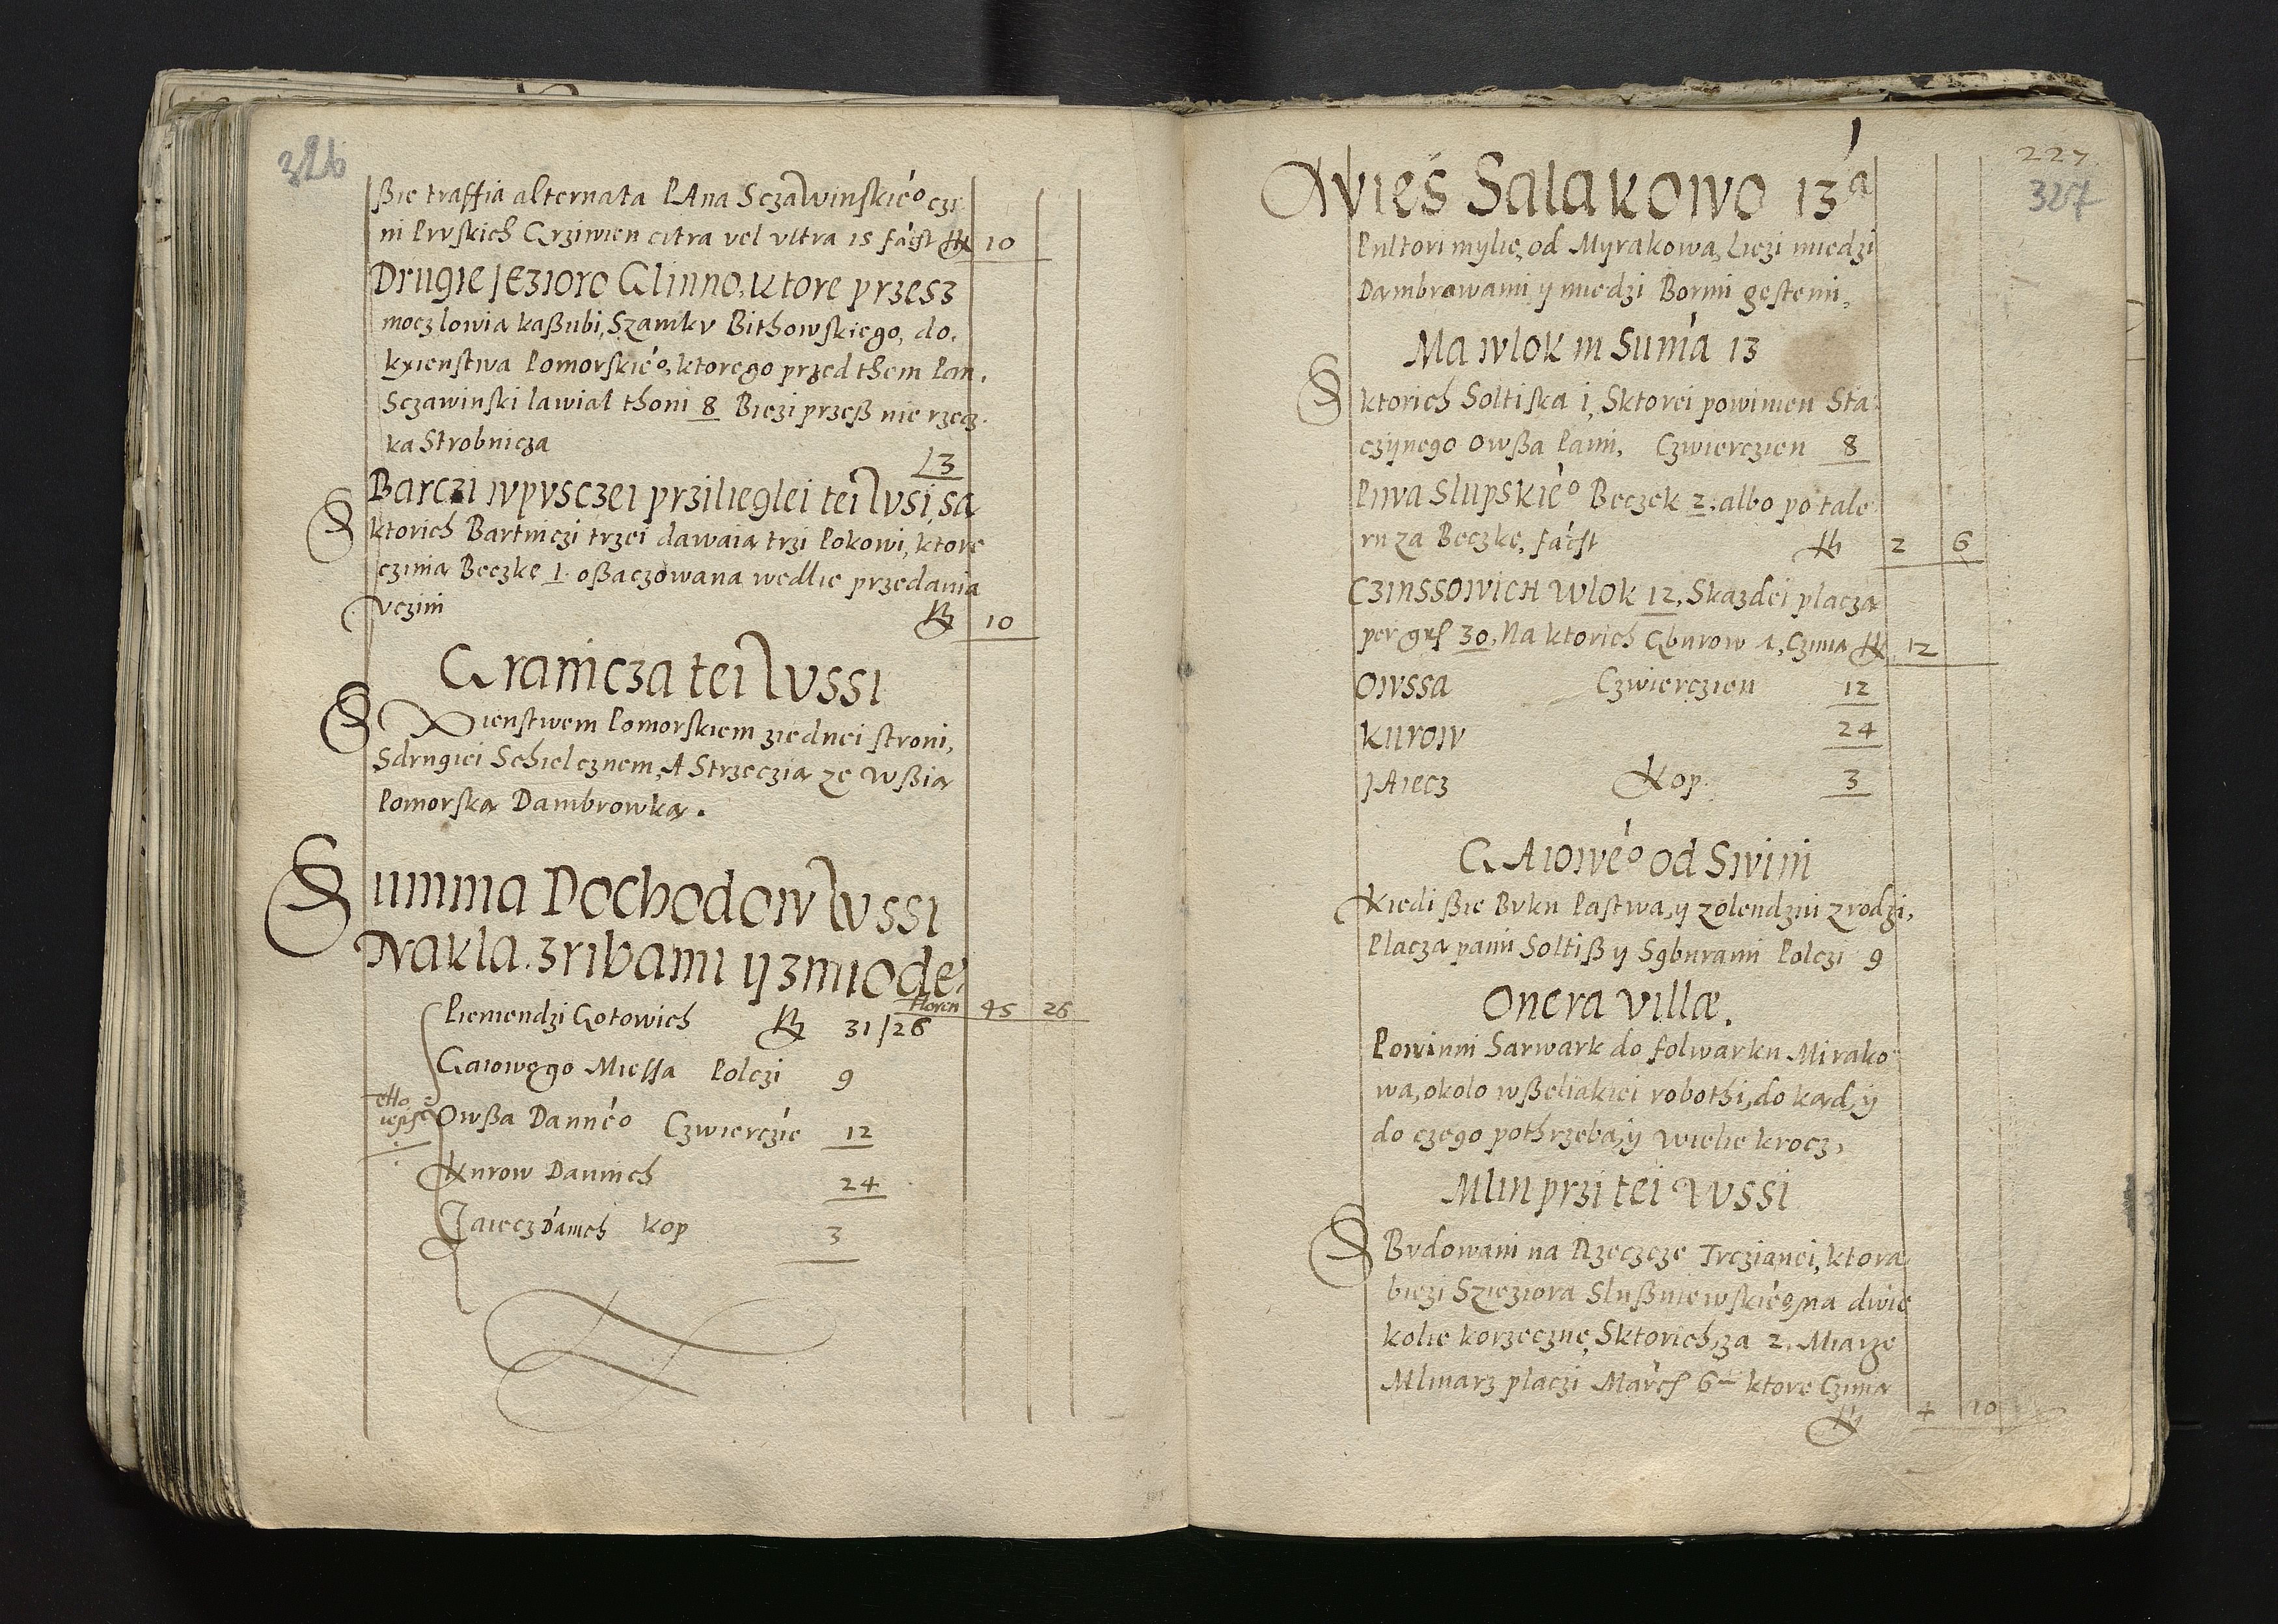 326
ßie traffia alternata PAna Sczawinskiéo czi
ni Pruskich Grziwien citra vel vltra 15 fácit 10
Drugie Jezioro Glinno, ktore przesz
moczlowia kaßubi, Szamku Bithowskiego, do
kxienstwa Pomorskiéo, ktorego przed them Pan
Sczawinski lawial thoni 8 Biezi przeß nie rzecz
ka Strobnicza
13
Barczi wpusczei przilieglei tei wsi, sa
S ktorich Bartniczi trzei dawaia trzi Pokowi, ktore
czinia Beczke 1. oßaczowana wedlie przedania
vczini 10
Granicza tei wssi
S Xienstwem Pomorskiem ziednei stroni,
Sdrugiei Schielcznem, A Strzeczia ze wßia
Pomorska Dambrowka.
Summa Dochodow wssi
Nakla. zribami y zmiode
floren 45 26
Pieniendzi Gotowich 31/26
Gaiowego Miessa Polczi 9
Owßa Dannéo Czwierczie 12
Kurow Dannich 24
Jaiecz Danich kop 3
227
327
Wieś Salakowo 13a
Pultori mylie, od Myrakowa, Liezi miedzi
Dambrowami y miedzi Bormi gestemi,
Ma wlok in Summa 13
S ktorich Soltiska 1, Sktorei powinien Sta
czyynego Owßa Pami, Czwierczien 8
Piwa Slupskiéo Beczek 2. albo po tale
ru za Beczke, fácit 2 6
Czinssowich wlok 12, Skazdei placza
per gross 30, Na ktorich Gburow 1, Czinia 12
Owssa Czwierczien 12
Kurow 24
JAiecz Kop 3
GAiowéo od Swini
Kiedi ßie Buku Pastwa, y zolendziu zrodzi,
Placza pami Soltiß y Sgburami Polczi 9
Onera villæ.
Powinni Sarwark do folwarku Mirako
wa, okolo wßeliakiei robothi, do kąd, y
do czego pothrzeba, y wielie krocz,
Mlin przi tei wssi
S Budowani na Rzeczcze Trczianei, ktora
biezi Szieziora Slußniewskiégo, na dwie
kolie korzeczne, Sktorich, za 2. Miarze
Mlinarz placzi Marcs 6 ktore Czinia
4 10